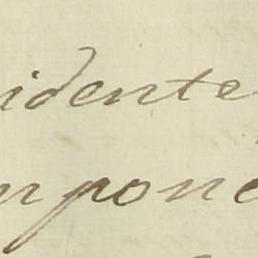 idente
mpone